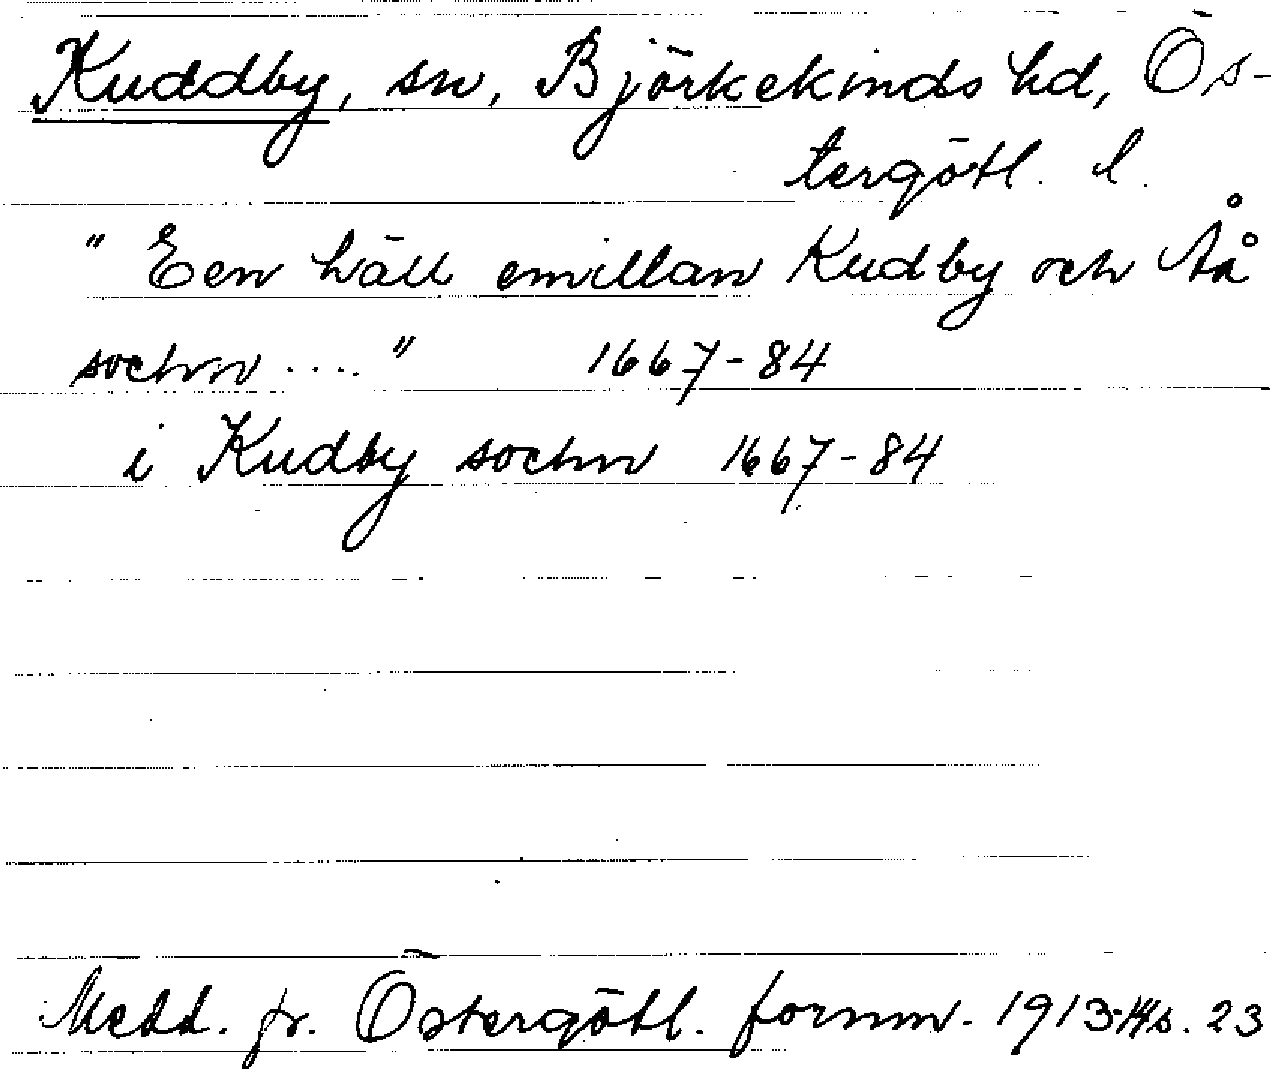 Kuddby, sn, Björkekinds hd, Ös-
tergötl. l.
" Een häll emillan Kudby och Åå
sochnn .... " 1667-84
i Kudby sochnn 1667-84
Medd. fr. Östergötl. fornm. 1913-14 s. 23